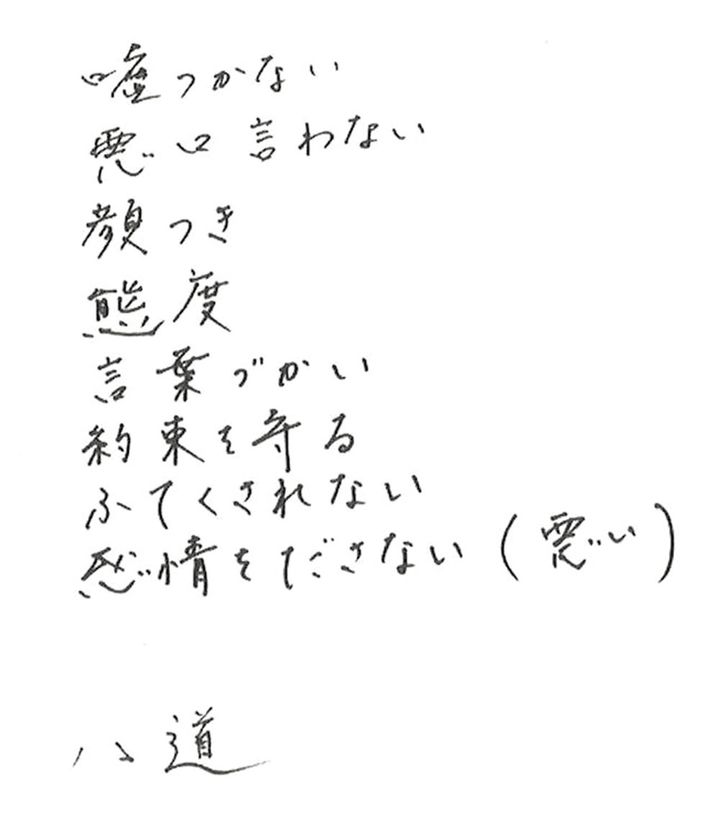 嘘つかない
悪口言わない
顔つき
態度
言葉づかい
約束を守る
ふてくされない
感情をださない(悪い)
八道